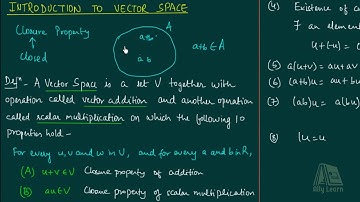 INTRODUCTION TO VECTOR SPACE
Closure Property
Closed
A
a+b
a b
a+b ∈ A
Defⁿ - A Vector Space is a set V together with
operation called vector addition and another operation
called scalar multiplication on which the following 10
properties hold -
For every u, v and w in V, and for every a and b in R,
(A) u+v ∈ V Closure property of addition
(B) au ∈ V Closure property of scalar multiplication
(4) Existence of
∃ an elemen
u+(-u) =
(5) a(u+v) = au+av
(6) (a+b)u = au+bu
(7) (ab)u =
(8) 1u = u
Ally Learn